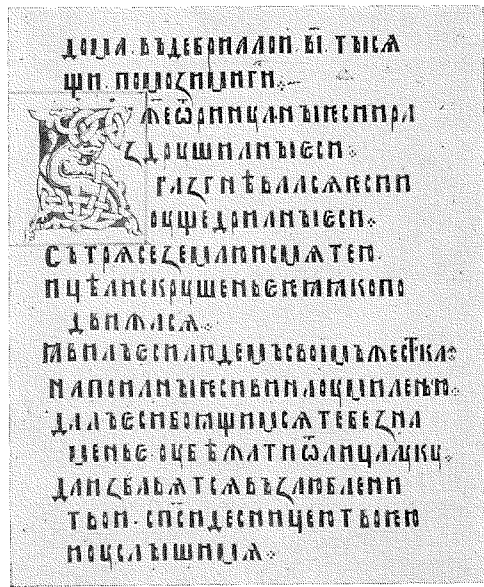 дома · въдебриалои · в҃і · тысѧ
щи · помозимиг҃и ·
Бж҃еѿринулъныѥсиира
здрушилъныѥси ·
разгнѣвалъсѧѥсии
оущедрилъныѥси ·
сътрѧсеземлюисмѧтею ·
ицѣлискрушеньеѥꙗꙗкопо
движасѧ ·
ꙗвилъѥсилюдемъсвоимъжест҃каꙗ
напоилъныѥсивинаоумилению ·
далъѥсибоꙗщимсѧтебезна
меньѥоубѣжатиѿлицалуку ·
даизбавѧтсѧвъзлюблени
твои · сп҃сидесницеютвоѥю
иоуслышимѧ ·